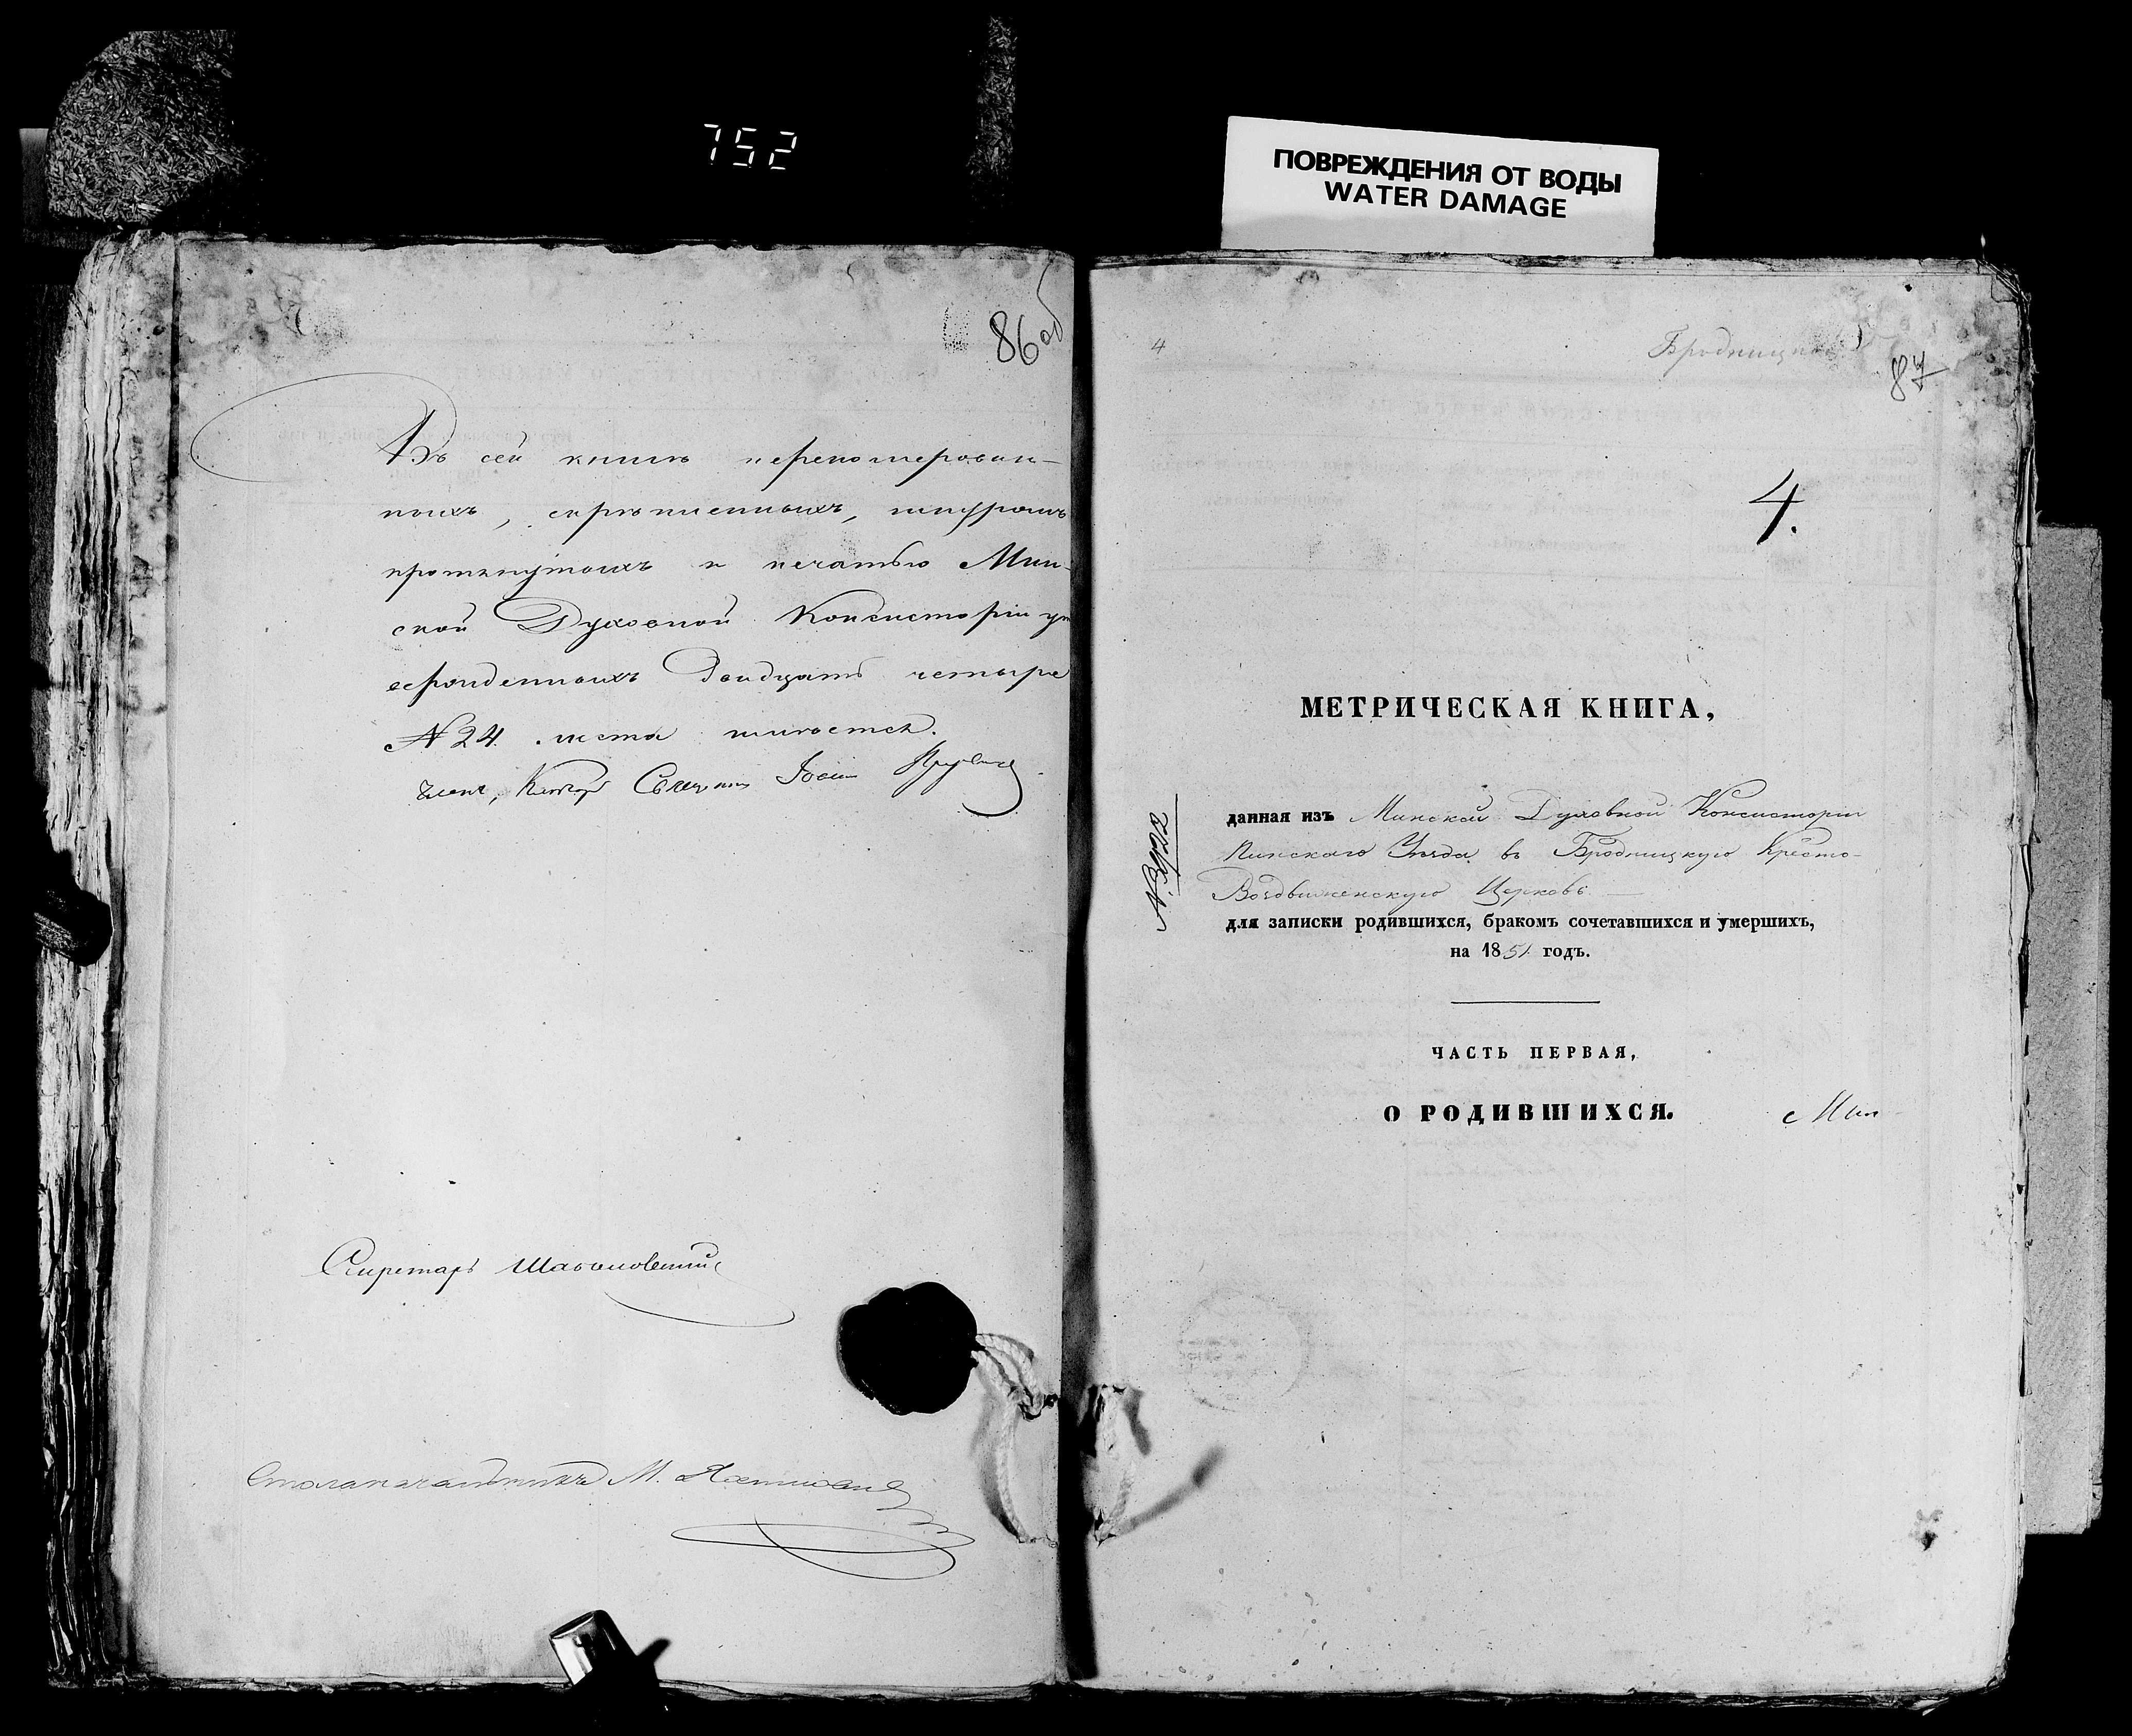 752
ПОВРЕЖДЕНИЯ ОТ ВОДЫ
WATER DAMAGE
86об
Въ сей книгѣ перенумерован-
ныхъ, скрѣпленныхъ, шнуромъ
протянутыхъ и печатью Мин-
ской Духовной Консисторіи ут
вержденныхъ двадцать четыре
№ 24. листа имѣется.
Членъ, Священникъ
Секретарь
Столоначальникъ М.
4
87
4.
МЕТРИЧЕСКАЯ КНИГА,
данная изъ Минской Духовной Консисторіи
Пинскаго Уѣзда въ Бродницкую Кресто-
Воздвиженскую Церковь
для записки родившихся, бракомъ сочетавшихся и умершихъ,
на 1851 годъ.
ЧАСТЬ ПЕРВАЯ,
О РОДИВШИХСЯ.
Мин